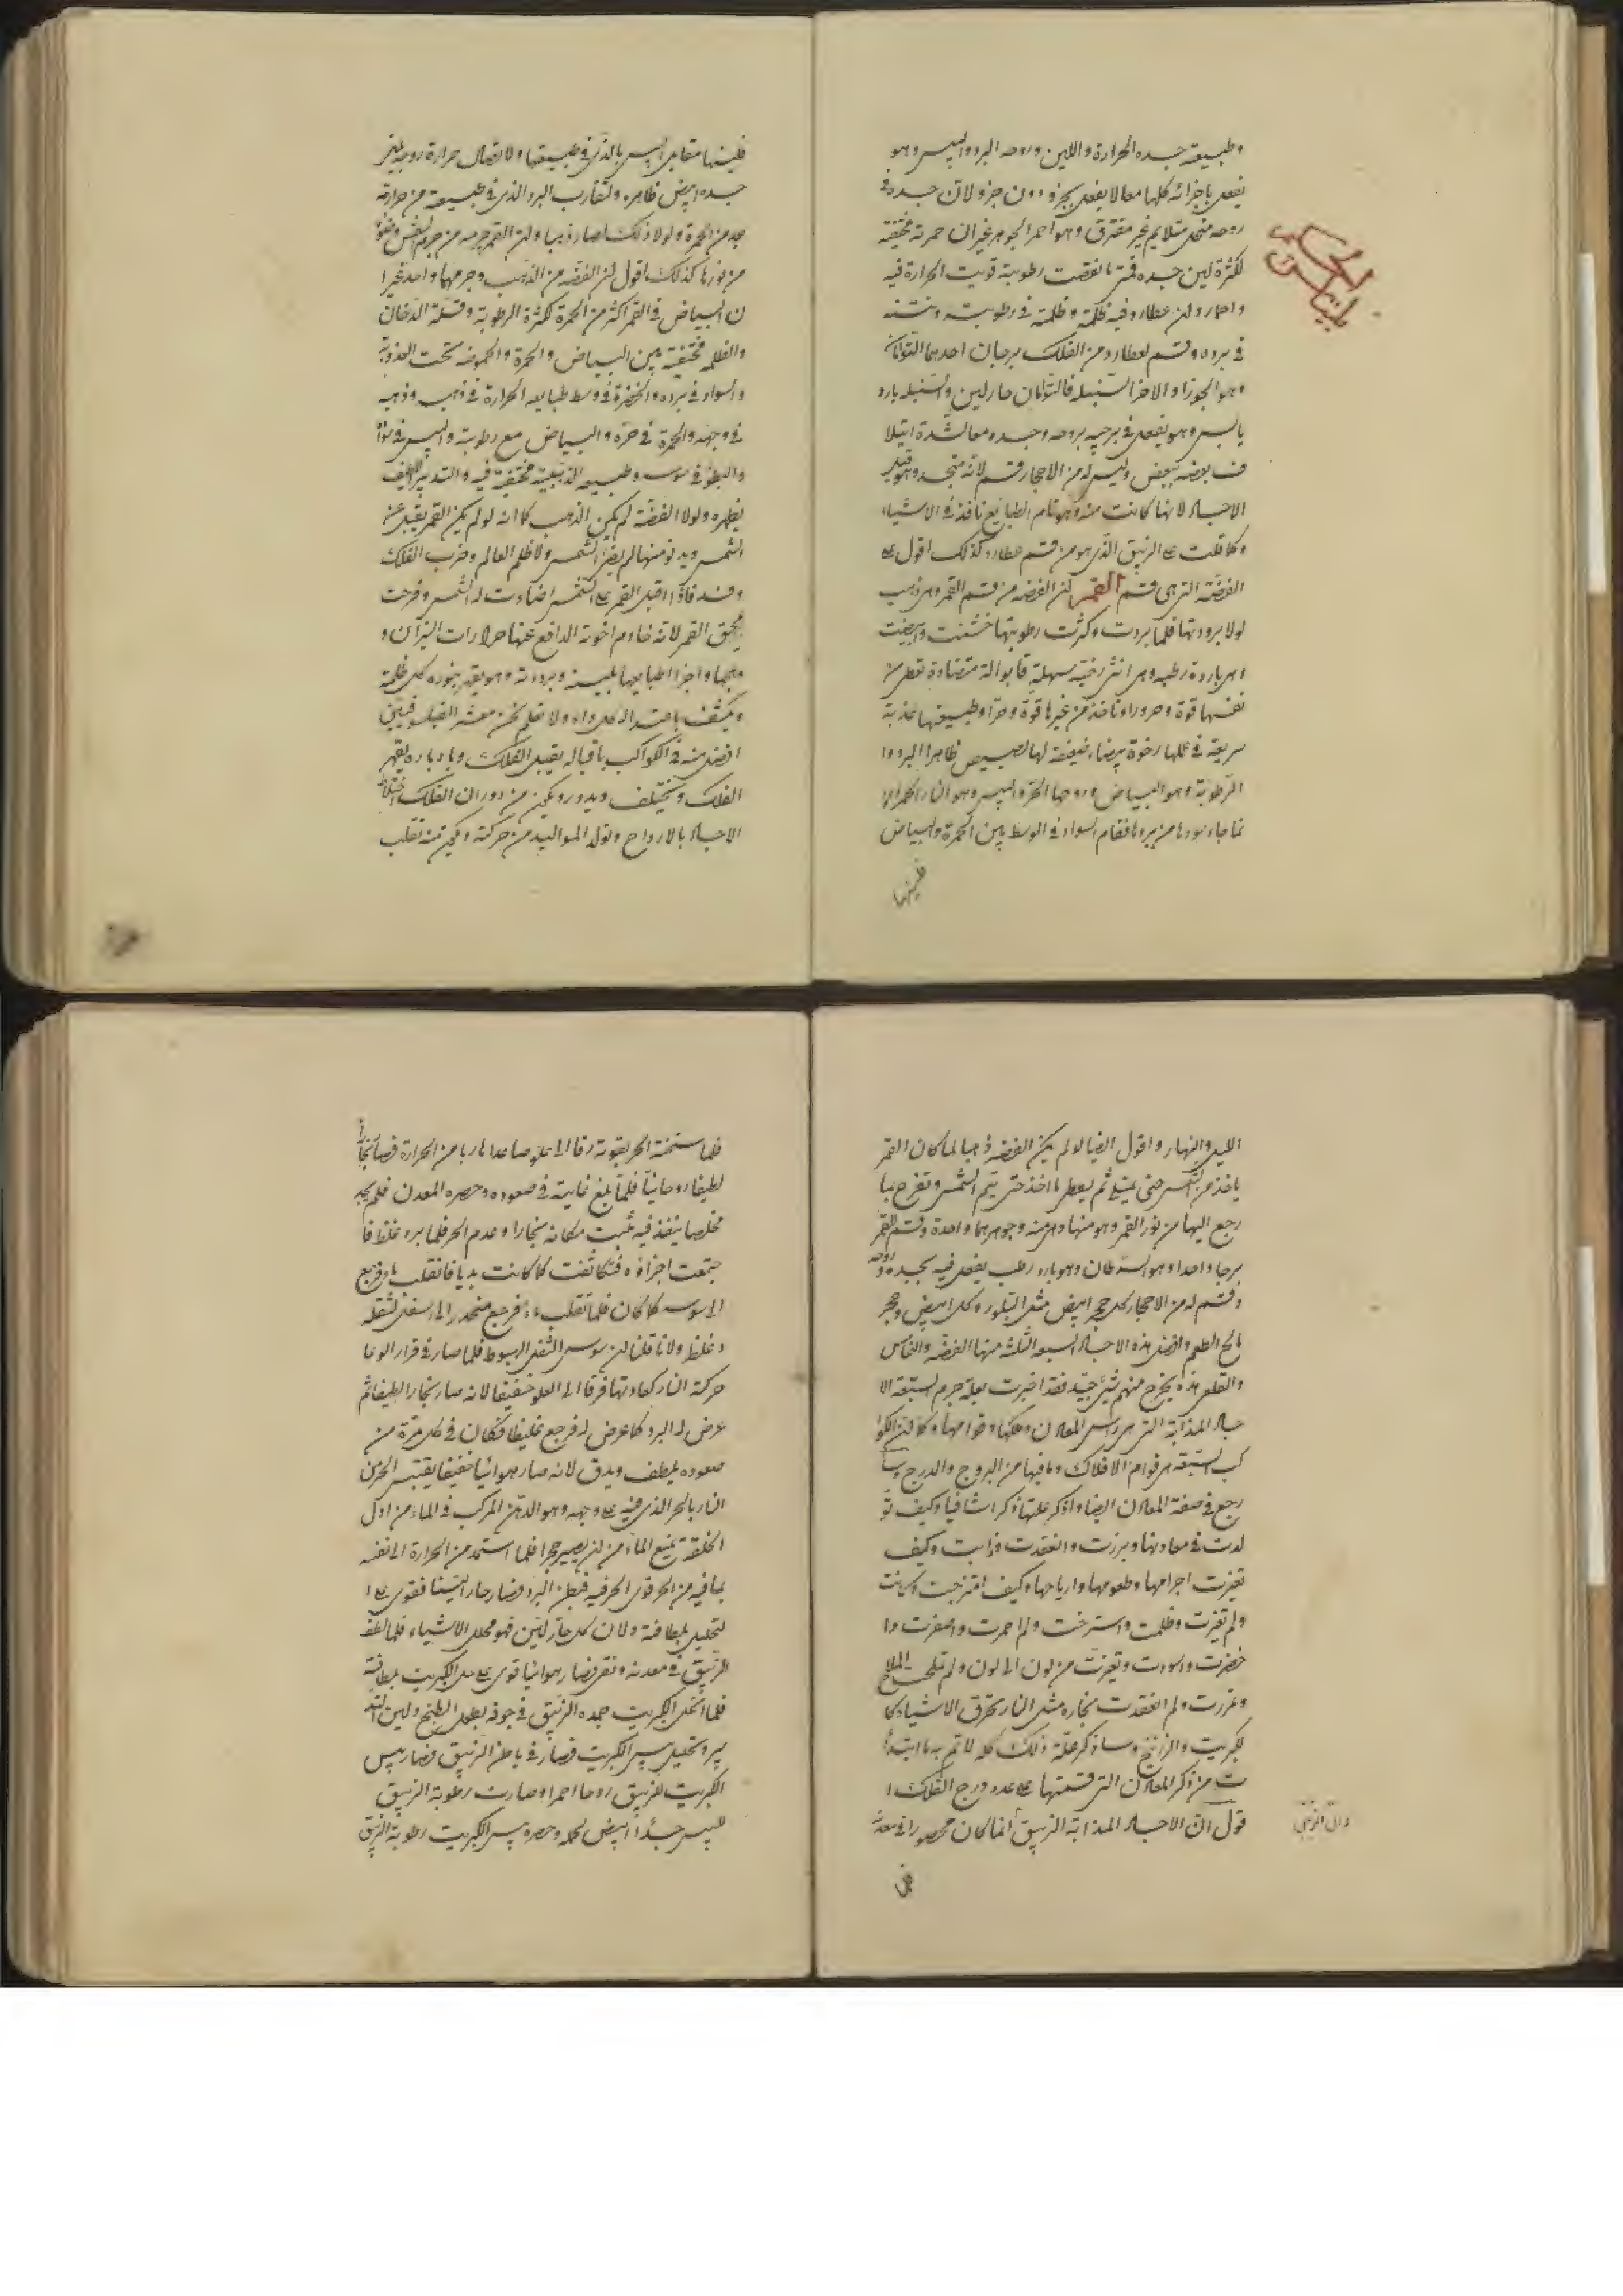 وطبيعة جسده الحرارة واللين وروحه البرد واليبس وهو
يفعل باجزائه كلها معا لا يفعل بجزو دون جزو لان جسده في
روحه منحل متلايم غير مفترق وهو احمر الجوهر غير ان حمرته مختفية
لكثرة لين جسده فمتى ما نقصت رطوبته قويت الحرارة فيه
واحمار ولن عطارد فيه ظلمة وظلمته في رطوبته ونتنه
في برده وقسم لعطارد من الفلك برجان احدهما التوامان
وهو الجوزا والاخر السنبله فالتوامان حار لين والسنبله بارد
يابس وهو يفعل في برجيه بروحه وجسده معا لشدة ايتلا
ف بعضه ببعض وليس له من الاحجار قسم لانه متجسد وهو قبل
الاجساد لانها كانت منه وهو تام الطبايع نافذ في الاشياء
وكما قلت على الزيبق الذي هو من قسم عطارد كذلك اقول على
الفضة التي هي قسم القمر لن الفضه من قسم القمر وهي ذهب
لولا برودتها فلما بردت وكثرت رطوبتها خشنت وابيضت
وهي باردة رطبه وهي انثى رخيه سهلة قابوالة متضادة تعطى من
نفسها قوة وحرورا وتاخذ من غيرها قوة وحرا وطبيعتها عذبة
سريعة في عملها رخوة بيضاء ضعيفة لها بصيص ظاهرا البرد وا
الرطوبة وهو البياض وروحها الحر واليبس وهو النار الحمرا وا
نما جاء سودها من بردها فقام السواد في الوسط بين الحمرة والبياض
فلينها
فلينها مقابل اليبس بالذي في طبيعتها ولاتصال حرارة روحه بلين
جسده ابيض ظاهره ولتقارب البرد الذي في طبيعته من حرارة
جسده من الحمرة ولولا ذلك لصار ذهبا ولن القمر جرمه من جرم الشمس وضوؤه
من نورها كذلك اقول لن الفضه من الذهب وجرمهما واحد غير ا
ن البياض في القمر اكثر من الحمرة لكثرة الرطوبة وقلة الدخان
والظلمه مختفية بين البياض والحمرة والحموضه تحت العذوبة
والسواد في برده والخضرة في وسط طبايعه الحرارة في ذهبه وذهبه
في وجهه والحمرة في حره والبياض مع رطوبته واليبس في سواده
والبطو في سوسه وطبيعه الذهبية مختفية فيه والتدبير اللطيف
يظهره ولولا الفضة لم يكن الذهب كما انه لو لم يكن القمر يقبل عن
الشمس ويدنو منها لم يضئ الشمس ولاظلم العالم وخرب الفلك
وفسد فاذا اقبل القمر على الشمس اضاءت له الشمس وفرحت
بمحق القمر لانه خادم اخوته الدافع عنها حرارات النيران و
منجها واجزا طبايعها بلينه وبرودته وهو يقهر بنوره كل ظلمة
ويكشف باعتداله كل داء ولا نعلم نحن معشر الفيلسوفيين
افضل منه في الكواكب باقباله يقبل الفلك وبادباره يقهر
الفلك ويختلف ويدور ويكون من دوران الفلك اختلاط
الاجساد بالارواح وتولد المواليد من حركته ويكون منه تقلب
الليل والنهار واقول ايضا لو لم يكن الفضه ذهبا لما كان القمر
ياخذ من الشمس حتى يمتلي ثم يعطي ما اخذ حتى يتم الشمس وتفرح بما
رجع اليها من نور القمر وهو منها وهي منه وجوهرهما واحدة وقسم للقمر
برجا واحدا وهو السرطان وهو بارد رطب يفعل فيه بجسده وروحه
وقسم له من الاحجار كل حجر ابيض مثل البلور وكل ابيض وحجر
مالح الطعم وافضل هذه الاجساد السبعه الثلثة منها الفضة والنحاس
والقلعي هذه يخرج منهم شئ جيد فقد اخبرت بعلة جرم السبعة الا
جساد المذابة التي هي راس المعادن وملكها وقوامها وكما لن الكوا
كب السبعة هي قوام الافلاك وما فيها من البروج والدرج وسا
رجع في صفة المعادن ايضا واذكر علتها ذكرا شافيا وكيف تو
لدت في معادنها وبرزت وانعقدت وذابت وكيف
تغيرت اجرامها وطعومها وارياحها وكيف امتزجت ولانت
ولم تغيرت وظلمت واسترخت ولم احمرت واصفرت وا
خضرت واسودت وتغيرت من لون الى لون ولم تملحت الملاح
ومررت ولم انعقدت بخاره مثل النار تحرق الاشياء كا
لكبريت والزرنيخ وساذكر علة ذلك كله لاتم به ما ابتدأ
ت من ذكر المعادن التي قسمتها على عدد درج الفلك ا
قول ان الاجساد المذابة الزيبق انما كان محصورا في معدنه
وان الزيبق
فلما سخنته الحر بقوته رقا الى علو صاعدا هاربا من الحرارة فصار بخارا
لطيفا روحانيا فلما بلغ غايته في صعوده وحصره المعدن فلم يجد
مخلصا ينفذ فيه ثبت مكانه بخارا وعدم الحر فلما برد غلظ فا
جتمعت اجزاؤه فتكاثفت كما كانت بديا فانقلب ماء ورجع
الى سوسه كما كان فلما تقلب ماء فرجع منحدرا الى اسفل لثقله
وغلظ ولانا قلنا لن سوس الثقل الهبوط فلما صار في قرار الوعا
حركته النار كعادتها فرقا الى العلو خفيفا لانه صار بخارا لطيفا ثم
عرض له البرد كما عرض له فرجع غليظا فكان في كل مرة من
صعوده يلطف ويدق لانه صار هوائيا خفيفا يقتبس الحر من
النار بالحر الذي فيه على وجهه وهو الدهن المركب في الماء من اول
الخلقة تمنع الماء من لن يصير حجرا فلما استمد من الحرارة الى نفسه
بما فيه من الحر قوى الحر فيه فبطن البرد فصار حارا لينا فقوى على ا
لتحليل بلطافته ولان كل حار لين فهو محلل الاشياء فلما لطف
الزيبق في معدنه ونقى فصار هوائيا قوى على حل الكبريت بلطافته
فلما انحل الكبريت جمده الزيبق في جوفه بطول الطبخ ولين التد
بير وتحليل يبس الكبريت فصار في باطن الزيبق فصار يبس
الكبريت للزيبق روحا احمرا وصارت رطوبة الزيبق
لليبس جسدا ابيض لحمه وحصره يبس الكبريت رطوبة الزيبق